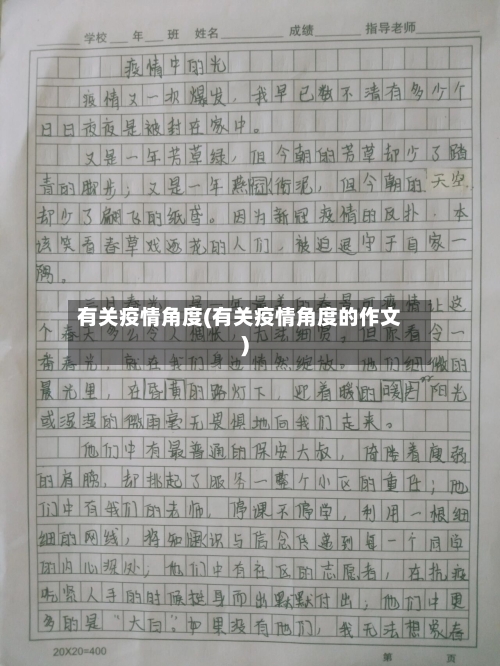 学校 年 班 姓名 成绩 指导老师
疫情中的光
疫情又一次爆发，我早已数不清有多少个
日日夜夜是被封在家中。
又是一年芳草绿，但今朝的芳草却少了踏
青的脚步；又是一年燕回衔泥，但今朝的天空
却少了翩飞的纸鸢。因为新冠疫情的反扑，本
该笑看春草戏逐花的人们，被迫退守于自家一
隅。
有关疫情角度(有关疫情角度的作文
)
晨光里，在昏黄的路灯下，迎着暖的暖阳光
或湿湿的微雨毫无畏惧地向我们走来。
他们中有最普通的保安大叔，倚踏着瘦弱
的肩膀，却挑起了服务一整个小区的重任；他
们中有我们的老师，停课不停学，利用一根细
细的网线，将知识与信念传递到每一个同学
的内心深处；他们中有社区的志愿者，在抗疫
吃紧人手的时候挺身而出默默付出；他们中更
多的是“大白”：如果没有他们，我无法想象春
20X20=400
第 页